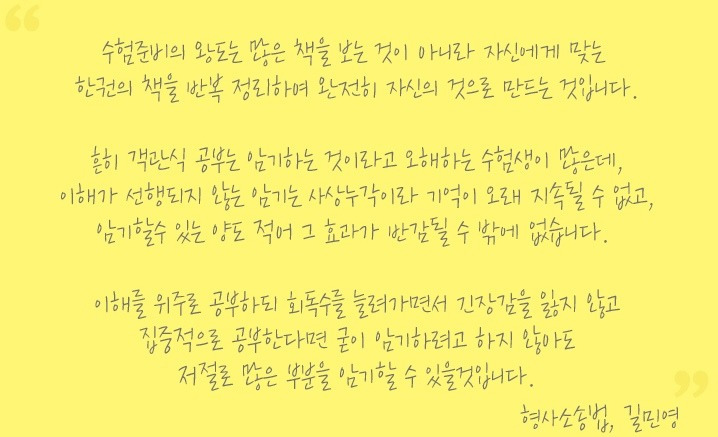 수험준비의 왕도는 많은 책을 보는 것이 아니라 자신에게 맞는
한권의 책을 반복 정리하여 완전히 자신의 것으로 만드는 것입니다.
흔히 객관식 공부는 암기하는 것이라고 오해하는 수험생이 많은데,
이해가 선행되지 않는 암기는 사상누각이라 기억이 오래 지속될 수 없고,
암기할수 있는 양도 적어 그 효과가 반감될 수 밖에 없습니다.
이해를 위주로 공부하되 회독수를 늘려가면서 긴장감을 잃지 않고
집중적으로 공부한다면 굳이 암기하려고 하지 않아도
저절로 많은 부분을 암기할 수 있을것입니다.
형사소송법, 길민영